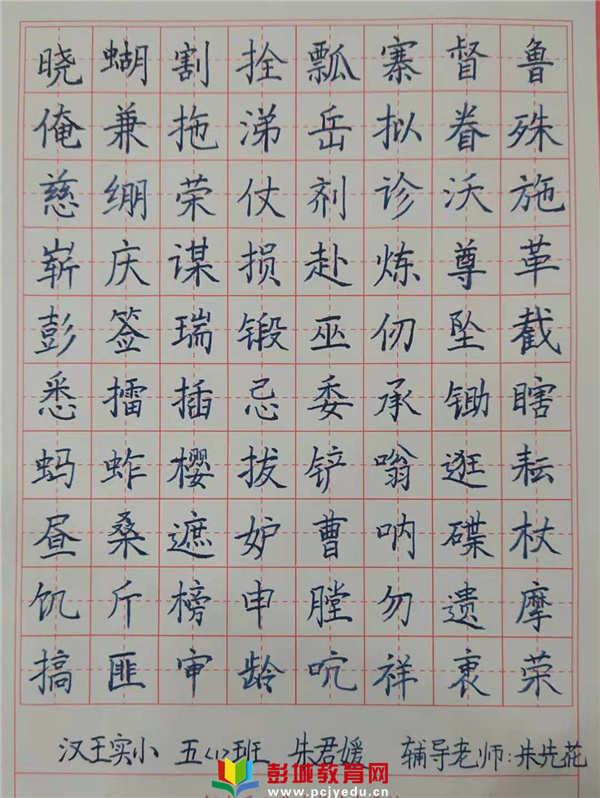 晓蝴割拴瓢寨督鲁
俺兼拖涕岳拟眷殊
慈绷荣仗剂诊沃施
崭庆谋损赴炼尊革
彭签瑞锻巫仞坠截
悉擂插忌委承锄瞎
蚂蚱樱拔铲嗡逛耘
昼桑遮妒曹呐碟杖
饥斤榜申膛勿遗摩
搞匪审龄吭祥衷荣
汉王实小 五<1>班 朱君媛 辅导老师:朱先花
彭城教育网
www.pcjyedu.cn